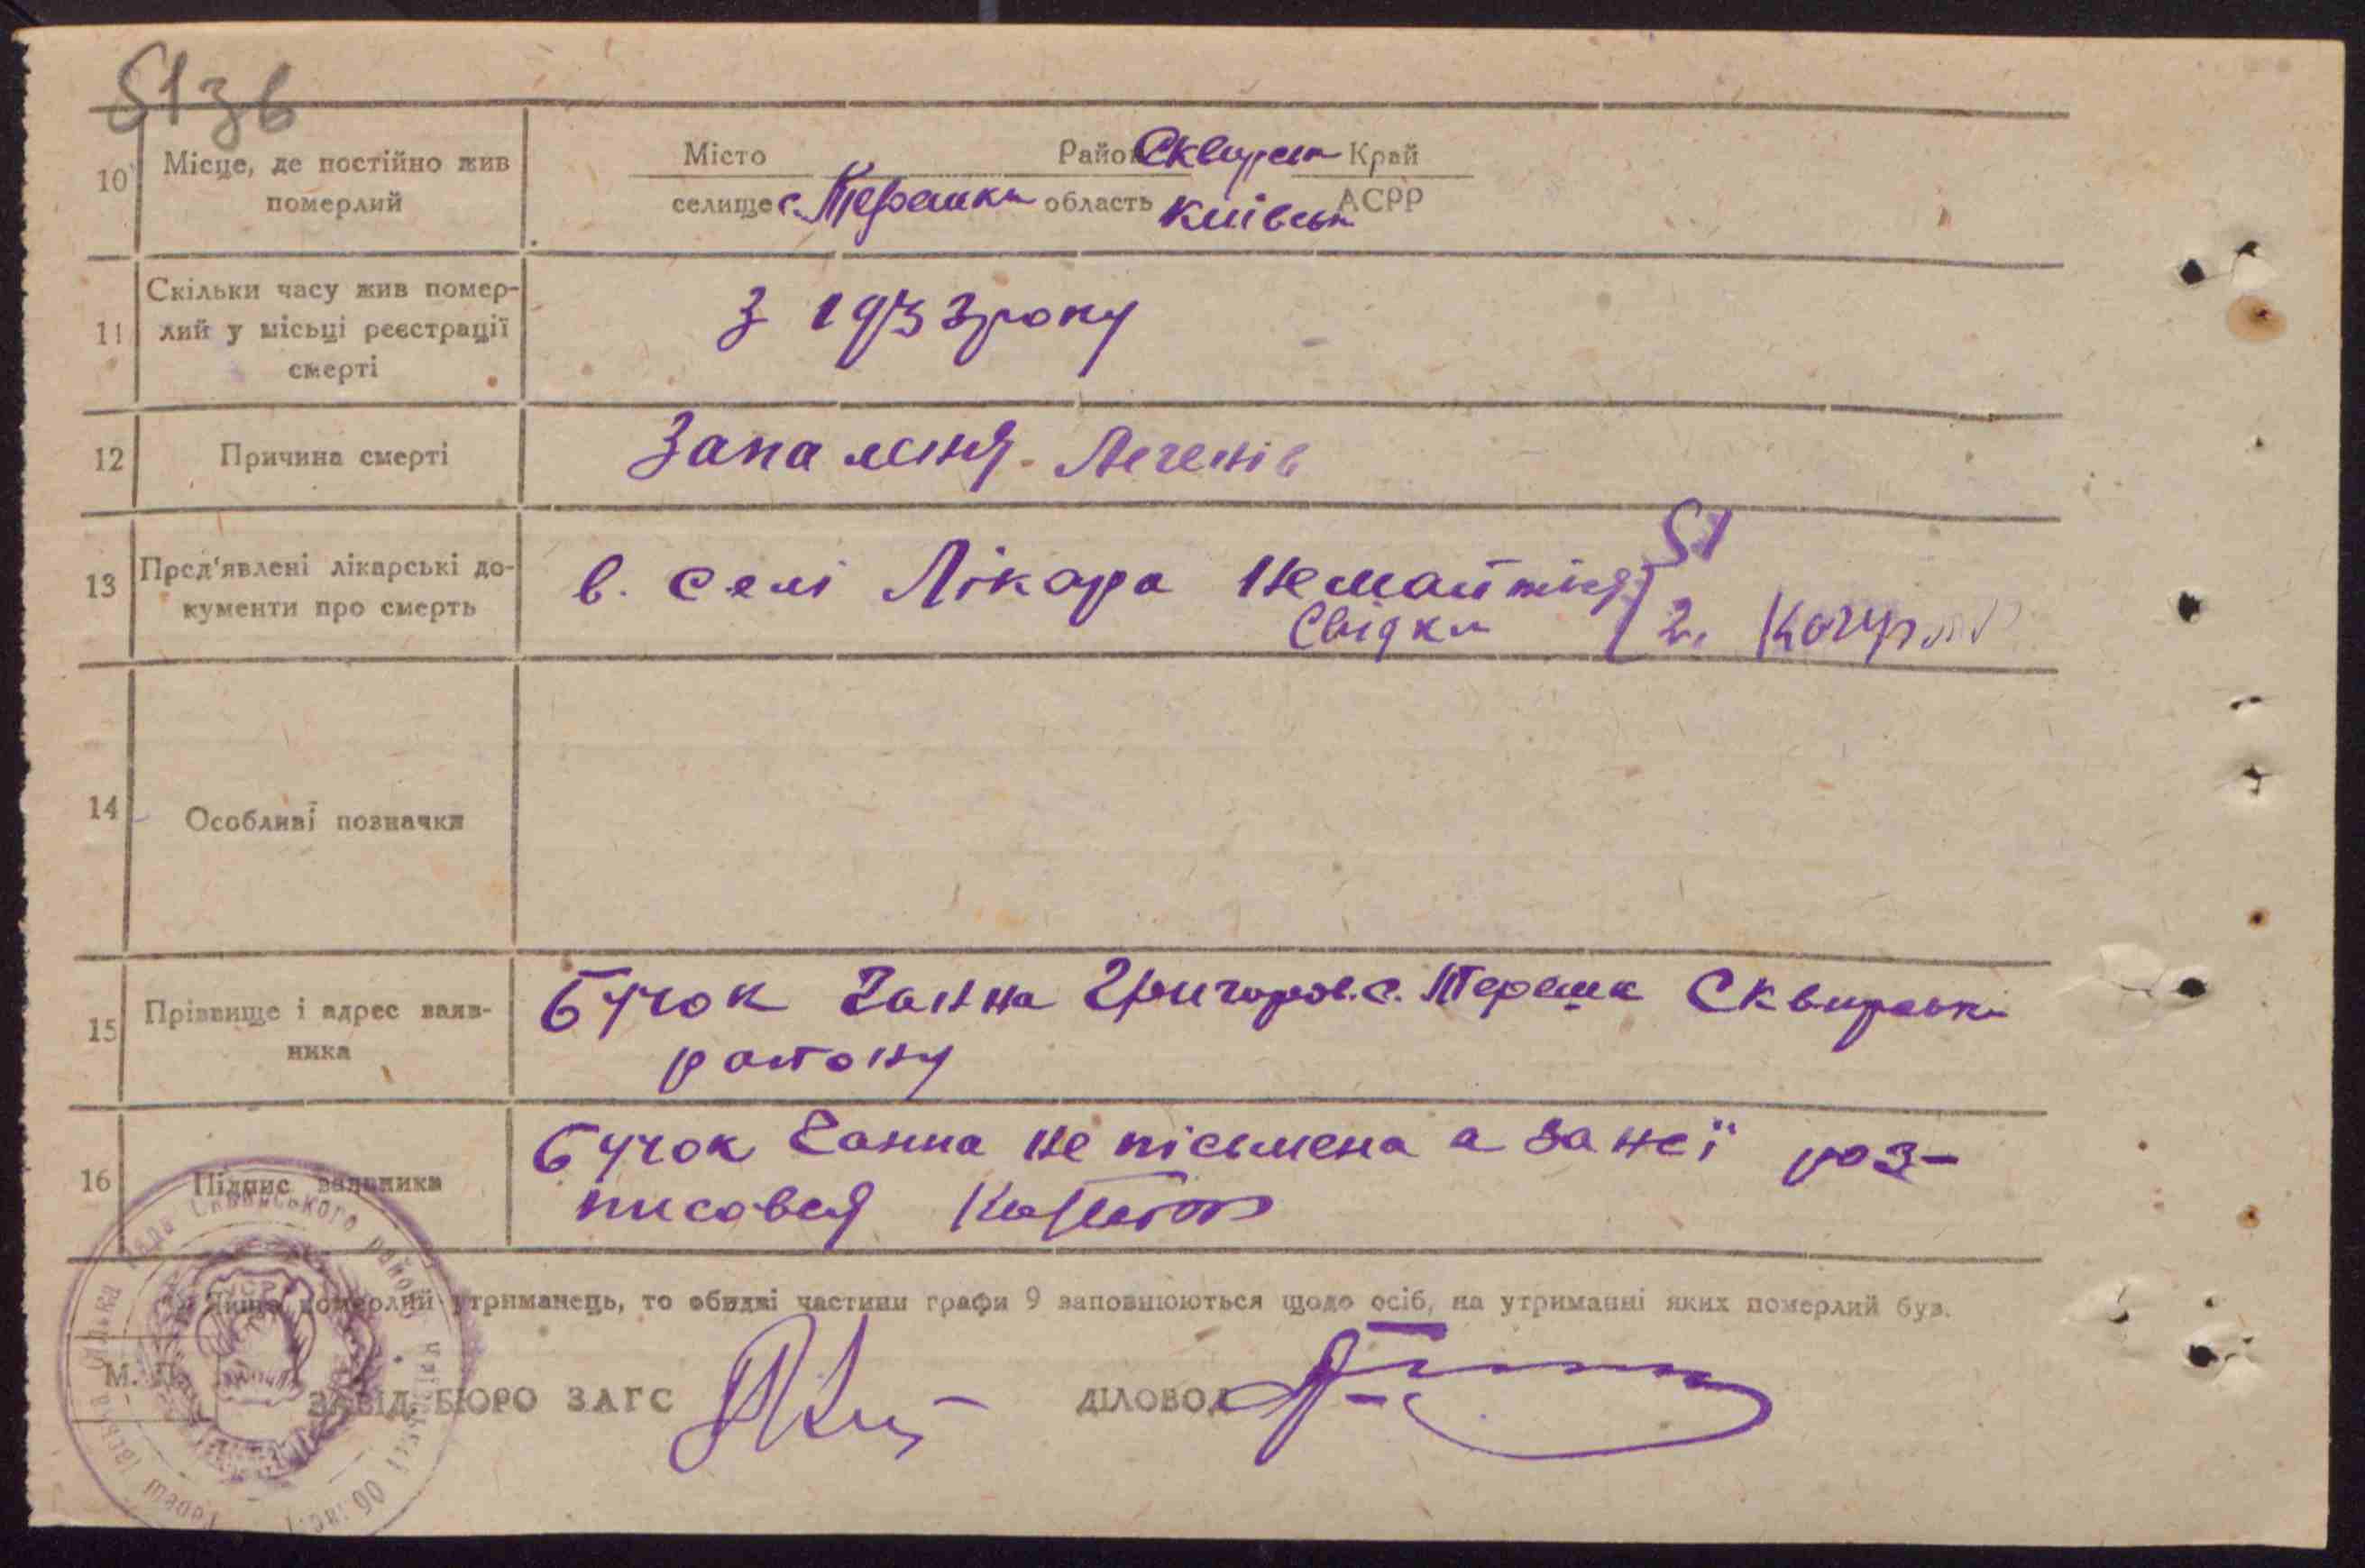 5136
10 Місце, де постійно жив
померлий
Місто Район Сквирськ Край
селище с. Терешки область Київськ АСРР
11 Скільки часу жив помер-
лий у місьці реєстрації
смерті
З 1933 року
12 Причина смерті
Запалння Легенів
13 Пред'явлені лікарські до-
кументи про смерть
в. селі Лікара немай
Свідки 2.
14 Особливі позначки
15 Прізвище і адрес заяв-
ника
Бучок Ганна Григоров. с. Терешк Сквирськ
району
16 Підпис заявника
Бучок Ганна не пісьмена а за неї роз-
писовся
Якщо померлий утриманець, то обидві частини графи 9 заповнюються щодо осіб, на утриманні яких померлий був.
М. П.
ЗАВІД. БЮРО ЗАГС ДІЛОВОД
рада Сквирського району